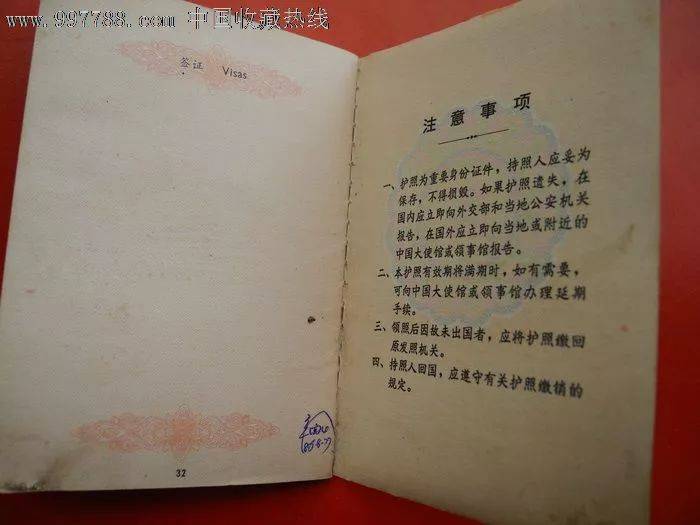 www.997788.com 中国收藏热线
签证 Visas
32
注意事项
一、护照为重要身份证件，持照人应妥为
保存，不得损毁。如果护照遗失，在
国内应立即向外交部和当地公安机关
报告，在国外应立即向当地或附近的
中国大使馆或领事馆报告。
二、本护照有效期将满期时，如有需要，
可向中国大使馆或领事馆办理延期
手续。
三、领照后因故未出国者，应将护照缴回
原发照机关。
四、持照人回国，应遵守有关护照缴销的
规定。